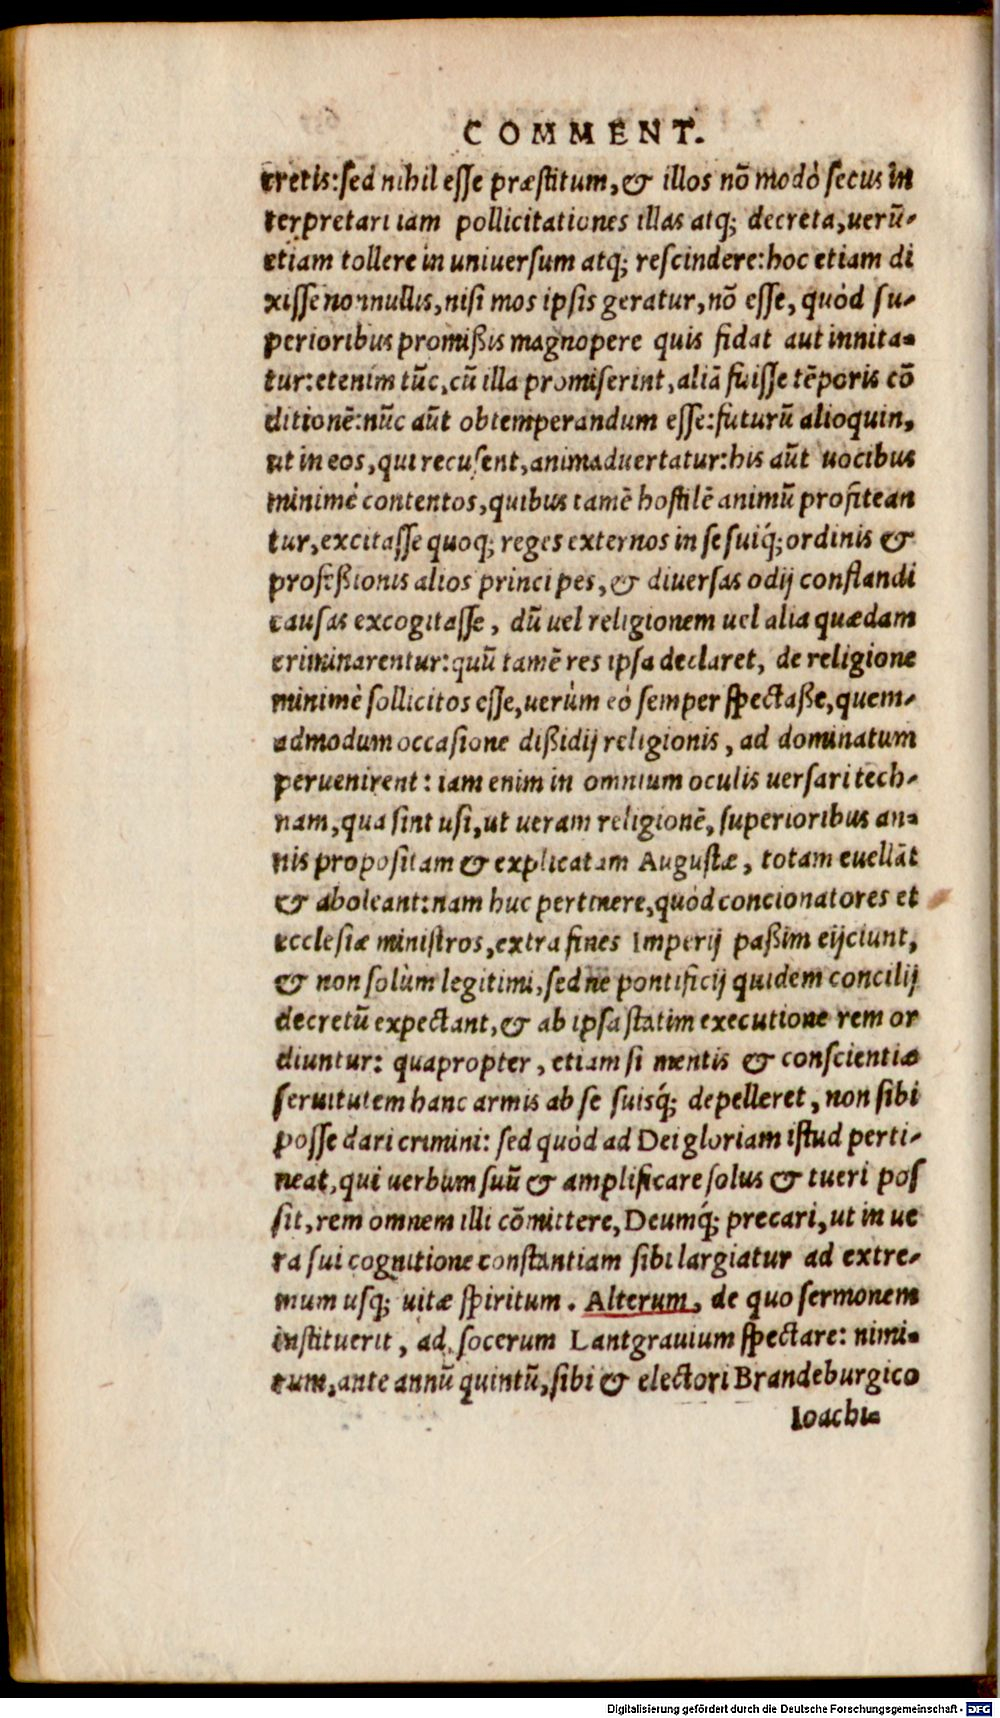 COMMENT.
cretis: sed nihil esse præstitum, & illos nō modò secus in
terpretari iam pollicitationes illas atq; decreta, uerū-
etiam tollere in uniuersum atq; rescindere: hoc etiam di
xisse nonnullis, nisi mos ipsis geratur, nō esse, quòd su-
perioribus promißis magnopere quis fidat aut innita-
tur: etenim tūc, cū illa promiserint, aliā fuisse tēporis cō
ditionē: nūc aūt obtemperandum esse: futurū alioquin,
ut in eos, qui recusent, animaduertatur: his aūt uocibus
minimè contentos, quibus tamē hostilē animū profitean
tur, excitasse quoq; reges externos in se suiq́; ordinis &
profeßionis alios principes, & diuersas odij conflandi
causas excogitasse, dū uel religionem uel alia quædam
criminarentur: quū tamē res ipsa declaret, de religione
minimè sollicitos esse, uerùm eò semper spectaße, quem-
admodum occasione dißidij religionis, ad dominatum
peruenirent: iam enim in omnium oculis uersari tech-
nam, qua sint usi, ut ueram religionē, superioribus an-
nis propositam & explicatam Augustæ, totam euellāt
& aboleant: nam huc pertinere, quòd concionatores et
ecclesiæ ministros, extra fines Imperij paßim eijciunt,
& non solùm legitimi, sed ne pontificij quidem concilij
decretū expectant, & ab ipsa statim executione rem or
diuntur: quapropter, etiam si mentis & conscientiæ
seruitutem hanc armis ab se suisq́; depelleret, non sibi
posse dari crimini: sed quòd ad Dei gloriam istud perti-
neat, qui uerbum suū & amplificare solus & tueri pos
sit, rem omnem illi cōmittere, Deumq́; precari, ut in ue
ra sui cognitione constantiam sibi largiatur ad extre-
mum usq; uitæ spiritum. Alterum, de quo sermonem
instituerit, ad socerum Lantgrauium spectare: nimi-
rum, ante annū quintū, sibi & electori Brandeburgico
Ioachi-
Digitalisierung gefördert durch die Deutsche Forschungsgemeinschaft - DFG